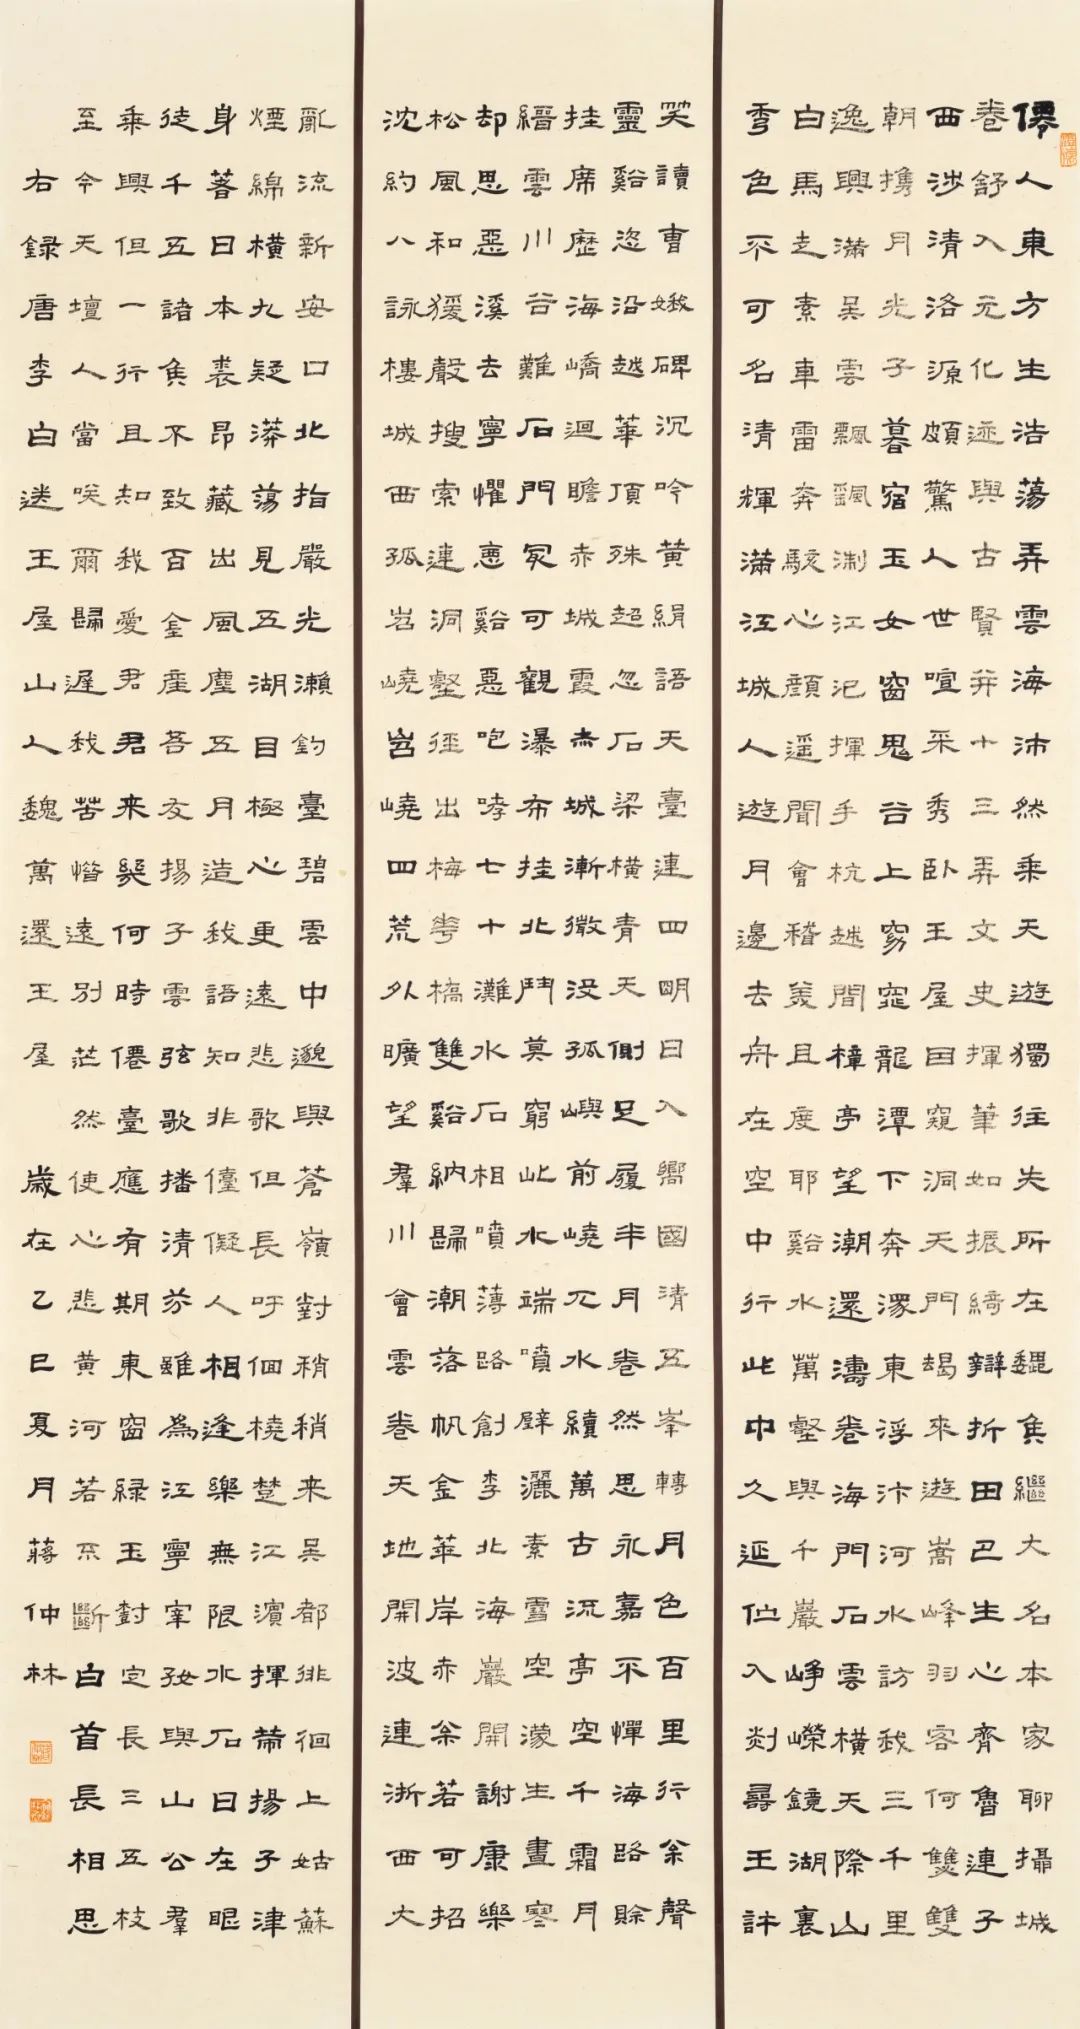 僊人東方生浩蕩弄雲海沛然乘天遊獨往失所在魏侯繼大名本家聊攝城
卷舒入元化迹與古賢并十三弄文史揮筆如振綺辯折田巴生心齊魯連子
西涉清洛源頗驚人世喧采秀臥王屋因窺洞天門朅來遊嵩峰羽客何雙雙
朝攜月光子暮宿玉女窗鬼谷上窈窕龍潭下奔潨東浮汴河水訪我三千里
逸興滿吳雲飄颻浙江汜揮手杭越間樟亭望潮還濤卷海門石雲橫天際山
白馬走素車雷奔駭心顏遙聞會稽美且度耶谿水萬壑與千巖崢嶸鏡湖裏
秀色不可名清輝滿江城人遊月邊去舟在空中行此中久延佇入剡尋王許
笑讀曹娥碑沉吟黃絹語天臺連四明日入嚮國清五峯轉月色百里行松聲
靈谿恣沿越華頂殊超忽石梁橫青天側足履半月眷然思永嘉不憚海路賒
挂席歷海嶠迴瞻赤城霞赤城漸微沒孤嶼前嶢兀水續萬古流亭空千霜月
縉雲川谷難石門最可觀瀑布挂北斗莫窮此水端噴壁灑素雪空濛生晝寒
却思惡溪去寧懼惡谿惡咆哮七十灘水石相噴薄路創李北海巖開謝康樂
松風和猨聲搜索連洞壑徑出梅花橋雙谿納歸潮落帆金華岸赤松若可招
沈約八詠樓城西孤岧嶢岧嶢四荒外曠望羣川會雲卷天地開波連浙西大
亂流新安口北指嚴光瀨釣臺碧雲中邈與蒼嶺對稍稍來吳都徘徊上姑蘇
煙綿橫九疑漭蕩見五湖目極心更遠悲歌但長吁佪橈楚江濱揮策揚子津
身著日本裘昂藏出風塵五月造我語知非儓儗人相逢樂無限水石日在眼
徒干五諸侯不致百金產吾友揚子雲弦歌播清芬雖為江寧宰好與山公羣
乘興但一行且知我愛君君來幾何時僊臺應有期東窗綠玉樹定長三五枝
至今天壇人當笑爾歸遲我苦惜遠別茫然使心悲黃河若不斷白首長相思
右録唐李白送王屋山人魏萬還王屋 歲在乙巳夏月蔣仲林